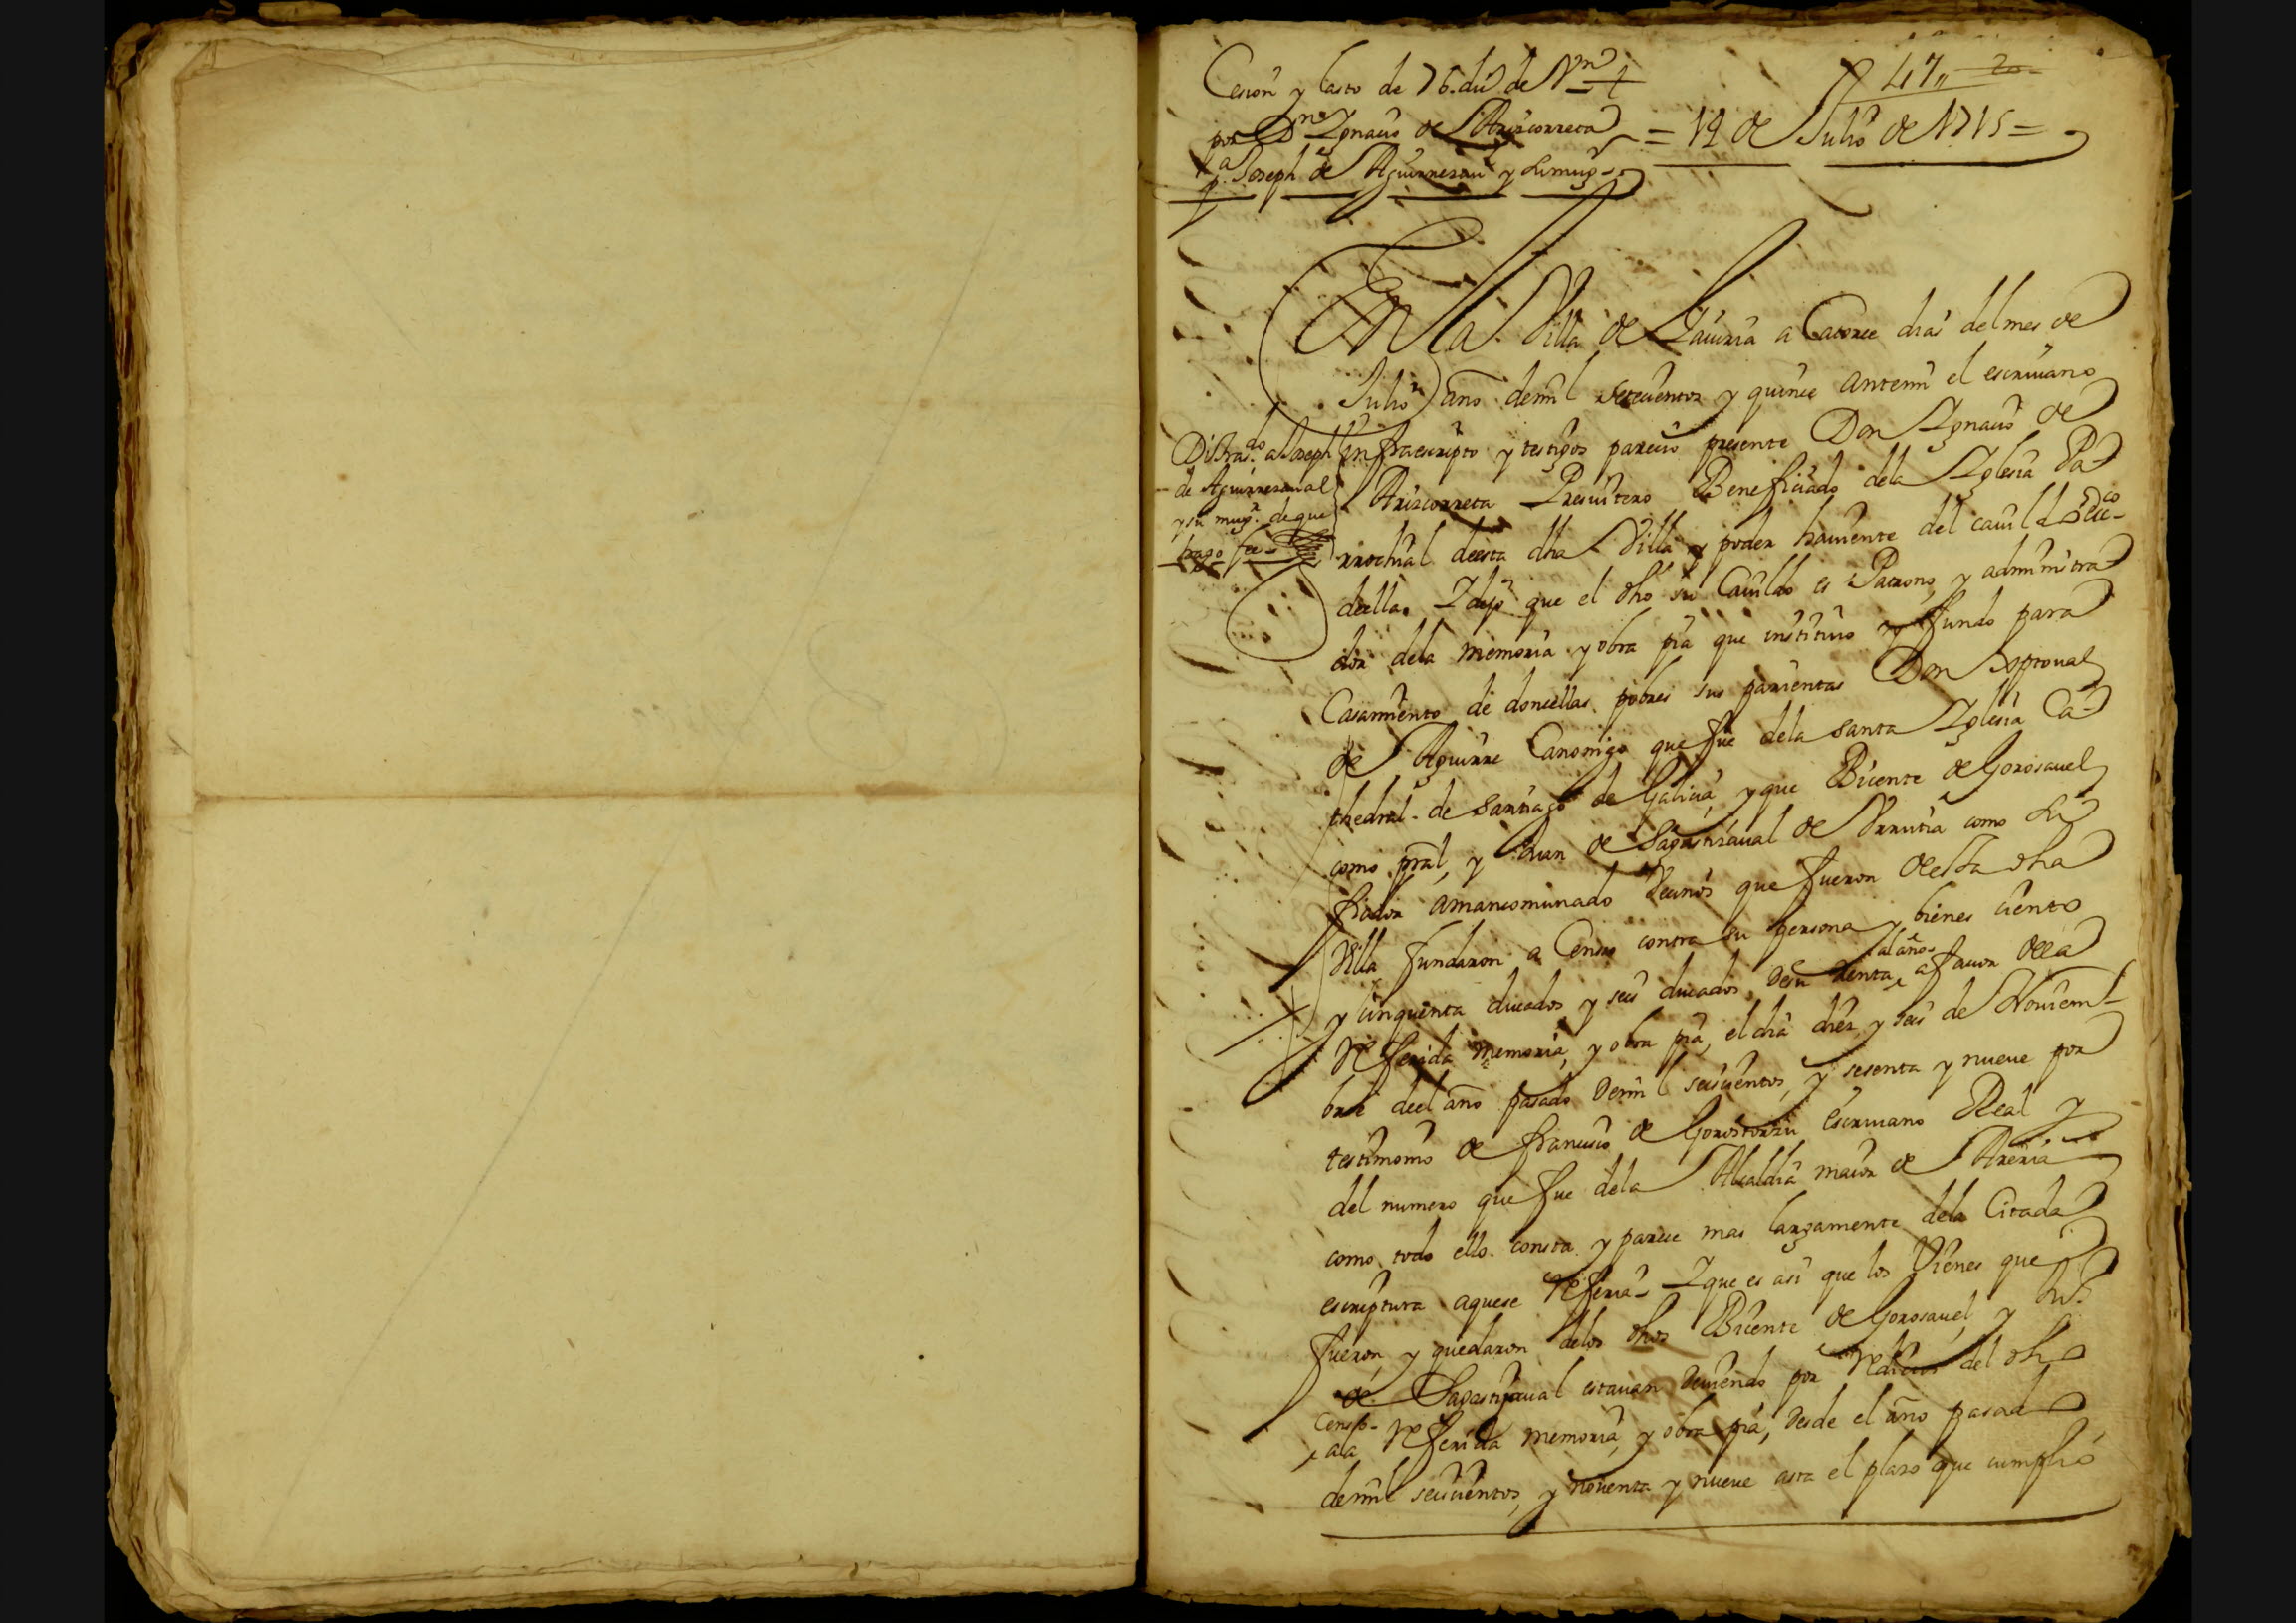 Cesion y lasto de 76. du.s de V.on
por D.n Ignacio de Arizcorreta
p.a Joseph de Aguirrezaual y su mug.r
47,, 20
= 14 de Julio de 1715 =
En la Villa de Lazcria a Catorze dias del mes de
Julio año de mil setecientos y quince ante mi el escriuano
infraescripto y testigos parecio presente Don Ignacio de
Arizcorreta Presuitero Beneficiado de la Iglesia Pa-
rrochial de esta dha Villa y poder hauiente del cauildo Ecc.co
de ella. I dijo que el dho su Cauildo es Patrono, y administra
dor de la memoria y obra pia que instituio y fundo para
Casamiento de doncellas pobres sus parientas Don Xptoual
de Aguirre Canonigo que fue de la santa Iglesia Ca-
thedral de Santiago de Galicia, y que Bicente de Gorosauel
como pral, y Juan de Sagastizaual de Urrutia como su
fiador amancomunado Vecinos que fueron de esta dha
Villa fundaron a Censo contra su persona y bienes ciento
y cinquenta ducados y seis ducados de su Renta al año a fauor de la
Referida memoria, y obra pia, el dia diez y seis de Nouiem-
bre de el año pasado de mil seiscientos, y sesenta y nueue por
testimonio de francisco de Gorostorzu escriuano Real y
del numero que fue de la Alcaldia maior de Areria
como todo ello consta y parece mas largamente de la Citada
escriptura a que se Referia I que es asi que los Vienes que
fueron, y quedaron de los dhos Bicente de Gorosauel, y Ju.o
de Sagastizaual estauan deuiendo por Reditos del dho
Censo a la Referida memoria, y obra pia, desde el año pasado
de mil seiscientos, y nouenta y nueue asta el plazo que cumplio
Di tras.do a Joseph
de Aguirrezaual
y su mug.r de que
hago fee